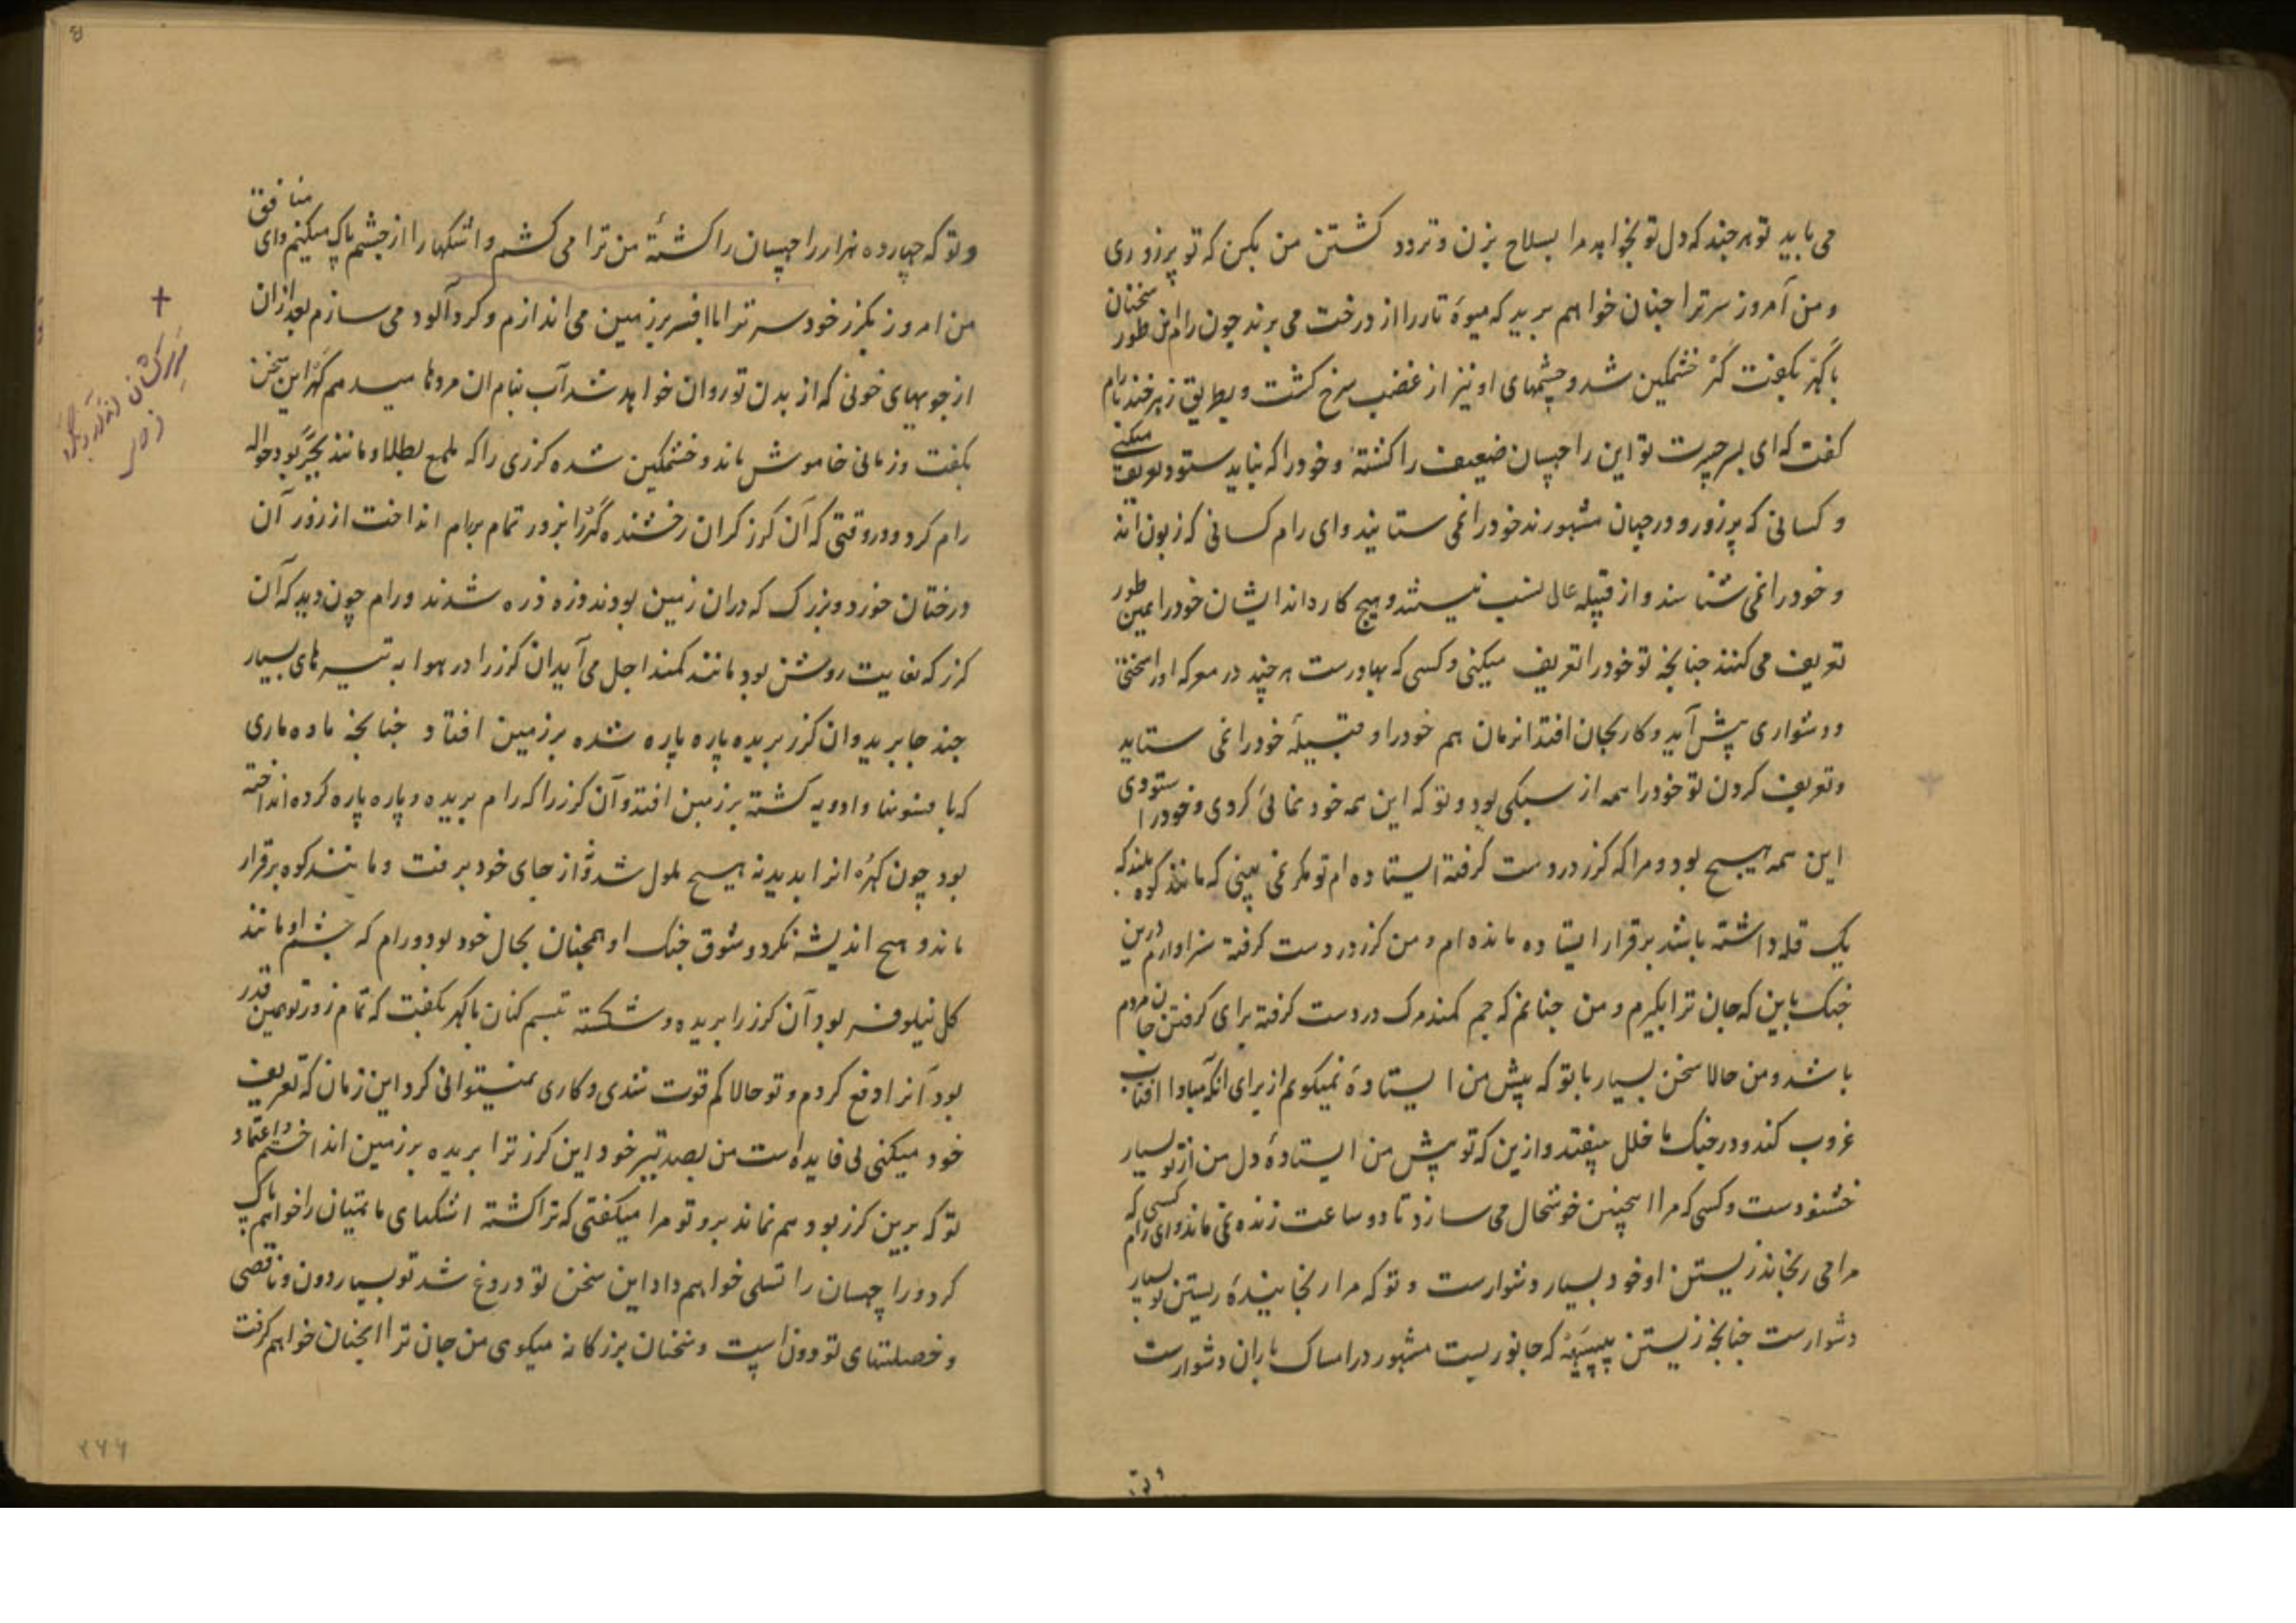 می باید تو هر چند که دل تو بخواهد مرا بسلاح بزن و تردد کشتن من بکن که تو پرزوری
و من امروز سر ترا چنان خواهم برید که میوهٔ تار را از درخت می برند چون رام این طور سخنان
با کهر بکفت کهر خشمکین شد و چشمهای او نیز از غضب سرخ کشت و بطریق زهرخند برام
کفت که ای پسر جسرت تو این راچهسان ضعیف را کشتهٔ و خود را که نباید ستود تعریف میکنی
و کسانی که پرزور و در جهان مشهورند خود را نمی ستایند و ای رام کسانی که زبون اند
و خود را نمی شناسند و از قبیله عالی نسب نیستند و هیچ کاره اند ایشان خود را همین طور
تعریف می کنند چنانچه تو خود را تعریف میکنی و کسی که بهادرست هر چند در معرکه او را سختی
و دشواری پیش آید و کار بجان افتد انزمان هم خود را و قبیلهٔ خود را نمی ستاید
و تعریف کردن تو خود را همه از سبکی بود و تو که این همه خودنمائی کردی و خود را ستودی
این همه هیچ بود و مرا که کرز در دست کرفته ایستاده ام تو مکر نمی بینی که مانند کوه بلند که
یک قله داشته باشد برقرار ایستاده مانده ام و من کرز در دست کرفته سزاوارم درین
جنک باین که جان ترا بکیرم و من چنانم که جم کمند مرک در دست کرفته برای کرفتن جان مردم
باشد و من حالا سخن بسیار با تو که پیش من ایستادهٔ نمیکویم از برای آنکه مبادا افتاب
غروب کند و در جنک ما خلل بیفتد و ازین که تو پیش من ایستادهٔ دل من از تو بسیار
خشنودست و کسی که مرا اینچنین خوشحال می سازد تا دو ساعت زنده نمی ماند و ای رام کسی که
مرا می رنجاند زیستن او خود بسیار دشوارست و تو که مرا رنجانیدهٔ زیستن تو بسیار
دشوارست چنانچه زیستن پپیهه که جانوریست مشهور در امساک باران دشوارست
و تو
و تو که چهارده هزار راچهسان را کشتهٔ من ترا می کشم و اشکها را از چشم پاک میکنم و ای منافق
من امروز بکرز خود سر ترا با افسر بر زمین می اندازم و کردآلود می سازم بعد ازان
از جویهای خونی که از بدن تو روان خواهد شد آب بنام ان مردها میدهم کهر این سخن
بکفت و زمانی خاموش ماند و خشمکین شده کرزی را که ملمع بطلا و مانند بجر بود حواله
رام کرد و در وقتی که آن کرز کران رخشنده کهر را بزور تمام برام انداخت از زور آن
درختان خورد و بزرک که دران زمین بودند ذره ذره شدند و رام چون دید که آن
کرز که بغایت روشن بود مانند کمند اجل می آید ان کرز را در هوا به تیرهای بسیار
چند جا برید و ان کرز بریده پاره پاره شده بر زمین افتاد چنانچه ماده ماری
که با فسونها و ادویه کشته بر زمین افتد و آن کرز را که رام بریده و پاره پاره کرده انداخته
بود چون کهر انرا بدید نه هیچ ملول شد و نه از جای خود برفت و مانند کوه برقرار
ماند و هیچ اندیشه نکرد و شوق جنک او همچنان بحال خود بود و رام که چشم او مانند
کل نیلوفر بود آن کرز را بریده و شکسته تبسم کنان با کهر بکفت که تمام زور تو همین قدر
بود آنرا دفع کردم و تو حالا کم قوت شدی و کاری نمیتوانی کرد این زمان که تعریف
خود میکنی بی فایده است من بصد تیر خود این کرز ترا بریده بر زمین انداختم و اعتماد
تو که برین کرز بود هم نماند برو تو مرا میکفتی که ترا کشته اشکهای ماتمیان را خواهم پاک
کرد و راچهسان را تسلی خواهم داد این سخن تو دروغ شد تو بسیار دون و ناقصی
و خصلتهای تو دون است و سخنان بزرکانه میکوی من جان ترا انچنان خواهم کرفت
۲۶۶